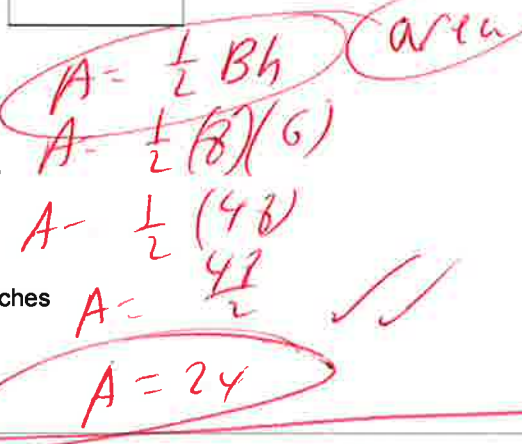 A = 1/2 Bh area
A = 1/2 (8)(6)
A - 1/2 (48)
ches A = 48/2
A = 24